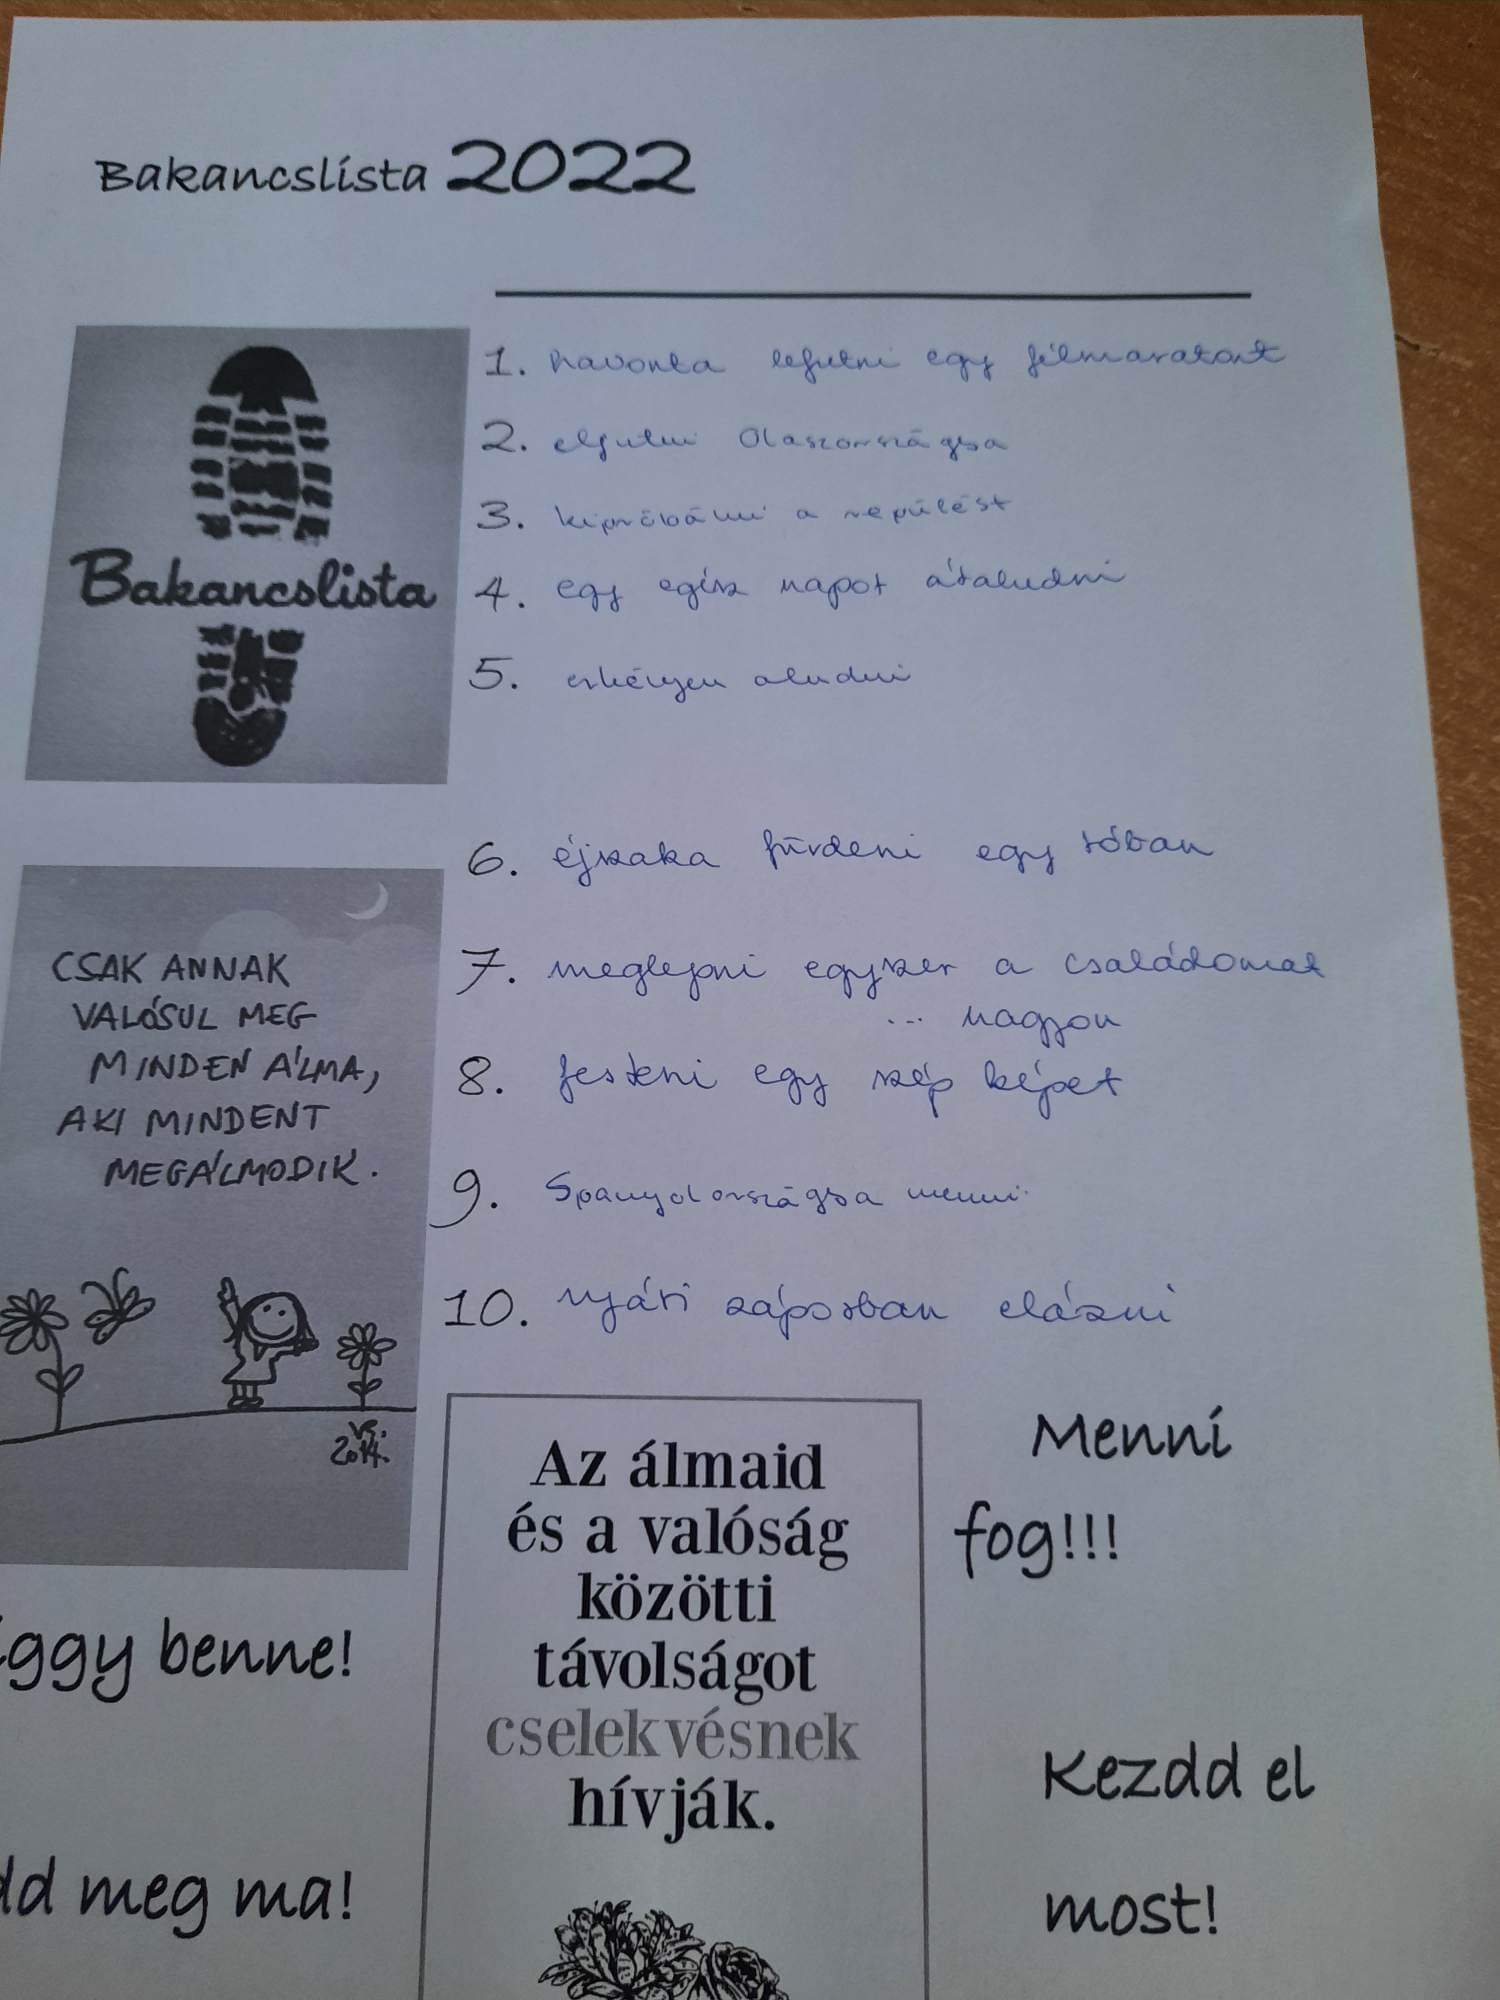 Bakancslista 2022
Bakancslista
1. havonta lefutni egy félmaratont
2. eljutni Olaszországba
3. kipróbálni a repülést
4. egy egész napot átaludni
5. erkélyen aludni
6. éjszaka fürdeni egy tóban
7. meglepni egyszer a családomat
... nagyon
8. festeni egy szép képet
9. Spanyolországba menni
10. nyári záporban elázni
CSAK ANNAK
VALÓSUL MEG
MINDEN ÁLMA,
AKI MINDENT
MEGÁLMODIK.
VS.
2014.
Az álmaid
és a valóság
közötti
távolságot
cselekvésnek
hívják.
Menni
fog!!!
iggy benne!
Kezdd el
most!
dd meg ma!